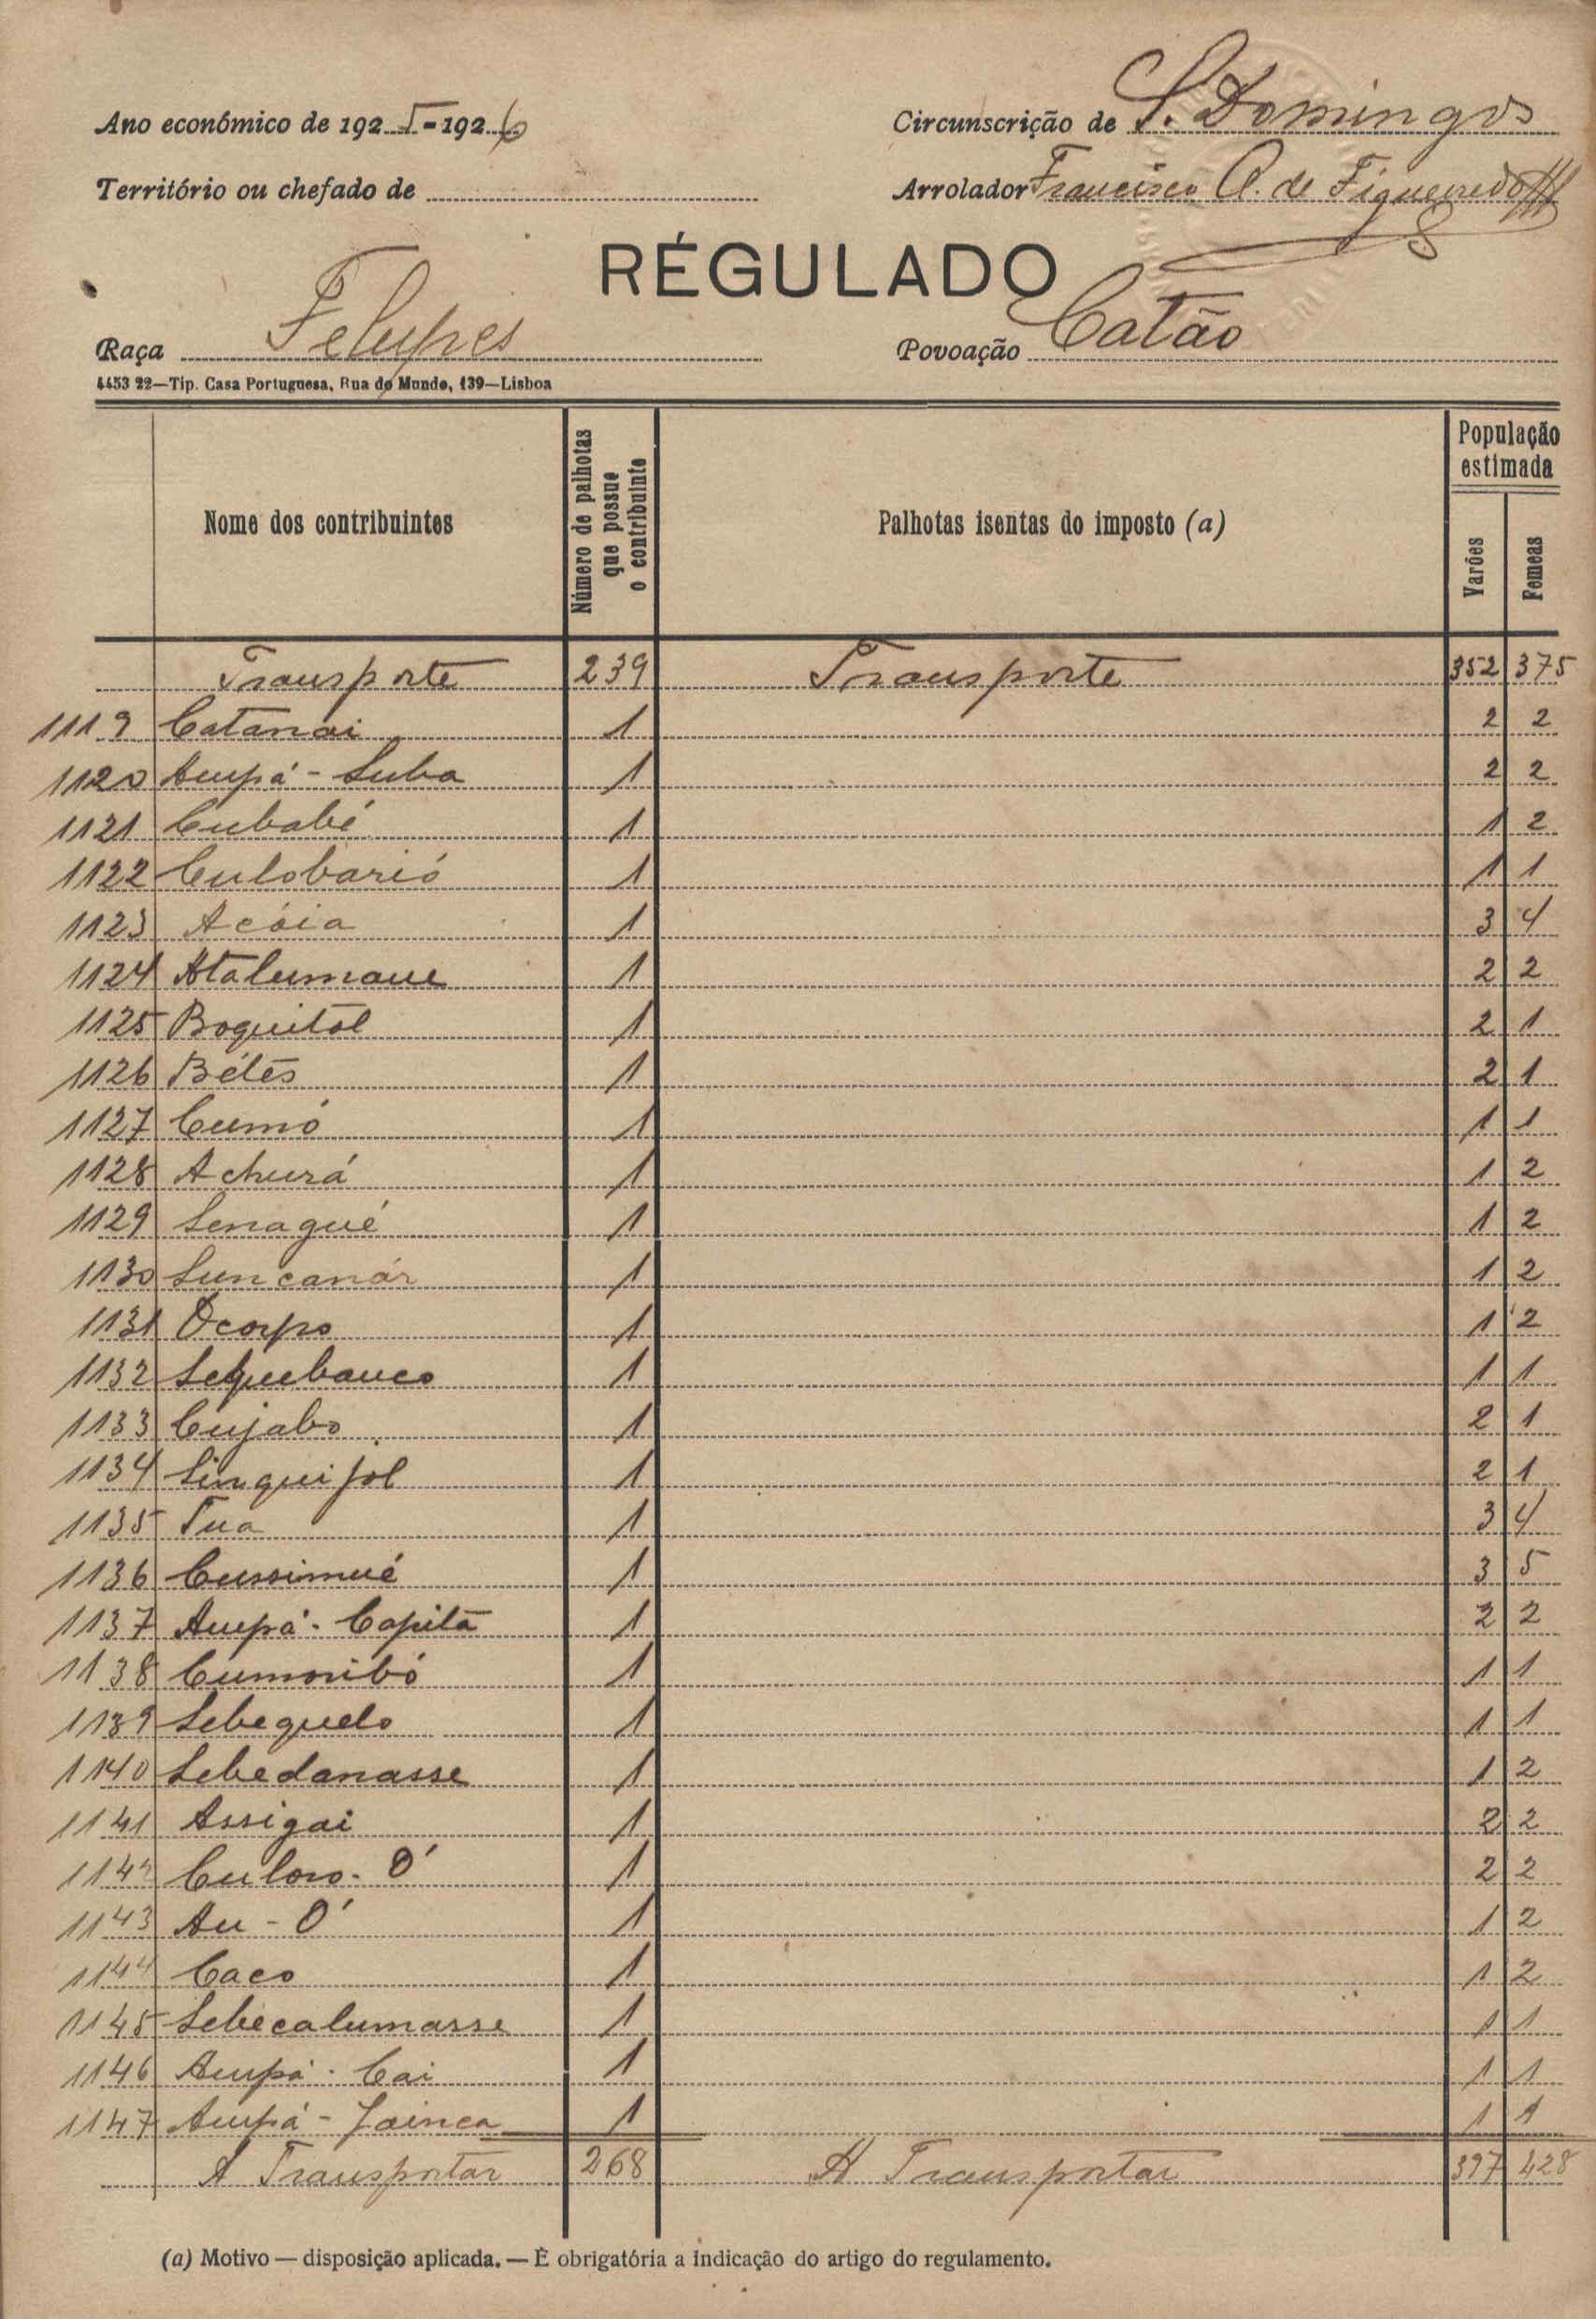 Ano económico de 1925-1926
Circunscrição de S. Domingos
Território ou chefado de
Arrolador Francisco A. de Figueiredo
RÉGULADO
Raça Felupes
Povoação Catão
4453 22—Tip. Casa Portuguesa, Rua do Mundo, 139—Lisboa
Nome dos contribuintes | Número de palhotas que possue o contribuinte | Palhotas isentas do imposto (a) | População estimada
Varões | Femeas
Transporte 239 Transporte 352 375
1119 Catanai 1 2 2
1120 Aupá - Suba 1 2 2
1121 Cubabé 1 1 2
1122 Culobarió 1 1 1
1123 Acóia 1 3 4
1124 Atalumaue 1 2 2
1125 Boquitol 1 2 1
1126 Bétes 1 2 1
1127 Cumó 1 1 1
1128 Achurá 1 1 2
1129 Senagué 1 1 2
1130 Suncanár 1 1 2
1131 Ocorpo 1 1 2
1132 1 1 1
1133 Cujabo 1 2 1
1134 Sinquijol 1 2 1
1135 Tua 1 3 4
1136 Cussimué 1 3 5
1137 Aupá - Capitã 1 2 2
1138 Cumoribó 1 1 1
1139 Sebequelo 1 1 1
1140 Sebedanasse 1 1 2
1141 Assigai 1 2 2
1142 Culoro - O' 1 2 2
1143 Au - O' 1 1 2
1144 Caco 1 1 2
1145 Sebecalumasse 1 1 1
1146 Aupá - Cai 1 1 1
1147 Aupá - Jainca 1 1 1
A Transportar 268 A Transportar 397 428
(a) Motivo — disposição aplicada. — È obrigatória a indicação do artigo do regulamento.